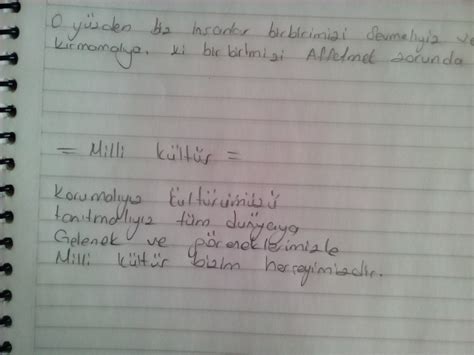 O yüzden biz insanlar birbirimizi Sevmeliyiz ve
kırmamalıyız. ki birbirimizi Affetmek zorunda
= Milli kültür =
Korumalıyız kültürümüzü
tanıtmalıyız tüm dünyaya
Gelenek ve göreneklerimizle
Milli kültür bizim herşeyimizdir.